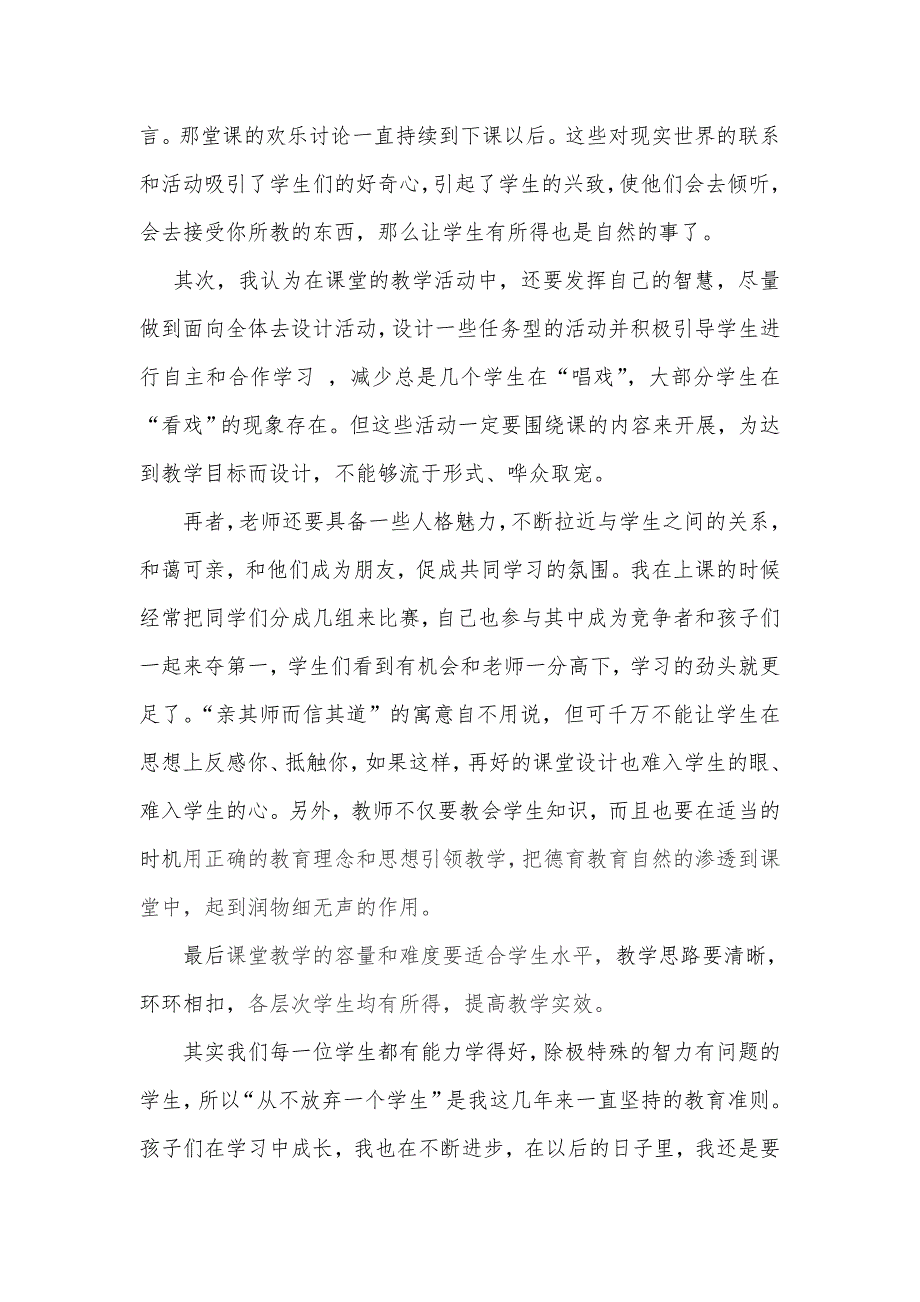 言。那堂课的欢乐讨论一直持续到下课以后。这些对现实世界的联系
和活动吸引了学生们的好奇心，引起了学生的兴致，使他们会去倾听，
会去接受你所教的东西，那么让学生有所得也是自然的事了。
其次，我认为在课堂的教学活动中，还要发挥自己的智慧，尽量
做到面向全体去设计活动，设计一些任务型的活动并积极引导学生进
行自主和合作学习 ，减少总是几个学生在“唱戏”，大部分学生在
“看戏”的现象存在。但这些活动一定要围绕课的内容来开展，为达
到教学目标而设计，不能够流于形式、哗众取宠。
再者，老师还要具备一些人格魅力，不断拉近与学生之间的关系，
和蔼可亲，和他们成为朋友，促成共同学习的氛围。我在上课的时候
经常把同学们分成几组来比赛，自己也参与其中成为竞争者和孩子们
一起来夺第一，学生们看到有机会和老师一分高下，学习的劲头就更
足了。“亲其师而信其道”的寓意自不用说，但可千万不能让学生在
思想上反感你、抵触你，如果这样，再好的课堂设计也难入学生的眼、
难入学生的心。另外，教师不仅要教会学生知识，而且也要在适当的
时机用正确的教育理念和思想引领教学，把德育教育自然的渗透到课
堂中，起到润物细无声的作用。
最后课堂教学的容量和难度要适合学生水平，教学思路要清晰，
环环相扣，各层次学生均有所得，提高教学实效。
其实我们每一位学生都有能力学得好，除极特殊的智力有问题的
学生，所以“从不放弃一个学生”是我这几年来一直坚持的教育准则。
孩子们在学习中成长，我也在不断进步，在以后的日子里，我还是要